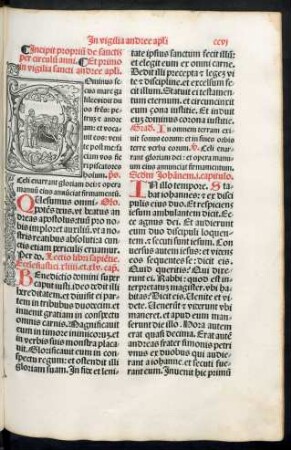 In vigilia andree apli
ccvj
Incipit propriũ de sanctis
per circulũ anni. Et primo
in vigilia sancti andree apli.
Dominus se
cus mare ga
lilee vidit du
os frẽs: pe
trum z andre
am: et vocauit
eos: veni
te post me fa
ciam vos fie
ri piscatores
hominum. ps.
Celi enarrant gloriam dei: z opera
manuũ eius annũciat firmamentũ.
Quesumus omni- Oro.
potẽs deus: vt beatus an
dreas apostolus tuũ pro no
bis imploret auxiliũ: vt a no
stris reatibus absoluti: a cun
ctis etiam periculis eruamur.
Per dñ. Lectio libri sapiẽtie.
Ecclesiastici. xliiij. et xlv. cap.
Benedictio domini super
caput iusti: ideo dedit illi
hereditatem: et diuisit ei par
tem in tribubus duodecim: et
inuenit gratiam in conspectu
omnis carnis. Magnificauit
eum in timore inimicorum: et
in verbis suis monstra placa
uit. Glorificauit eum in con
spectu regum: et ostendit illi
gloriam suam. In fide et leni-
tate ipsius sanctum fecit illũ: z
et elegit eum ex omni carne.
Dedit illi precepta z legez vi
te z discipline: et excelsum fecit
illum. Statuit ei testamentum
eternum: et circumcinxit
eum zona iustitie. Et induit
eum dominus corona iustitie.
Grad. In omnem terram exi
uit sonus eorum: et in fines orbis ter
re verba eorum.
Celi enarrant gloriam dei: z opera manu
um eius annũciat firmamentum.
Scdm Johãnem. j. capitulo.
In illo tempore. Sta
bat iohannes: z ex disci
pulis eius duo. Et respiciens
iesum ambulantem dicit.
Ecce agnus dei. Et audierunt
eum duo discipuli loquentẽ:
et secuti sunt iesum. Conuer
sus autem iesus: et videns eos
sequentes se dicit eis.
Quid queritis? Qui dixe
runt ei. Rabbi: quod est in
terpretatum magister. vbi ha
bitas? Dicit eis. Uenite et vi
dete. Uenerunt et viderunt vbi
maneret: et apud eum manse
runt die illo. Hora autem
erat quasi decima. Erat autẽ
andreas frater simonis petri
vnus ex duobus qui audie
rant a iohanne: et secuti fue
rant eum. Inuenit hic primũ